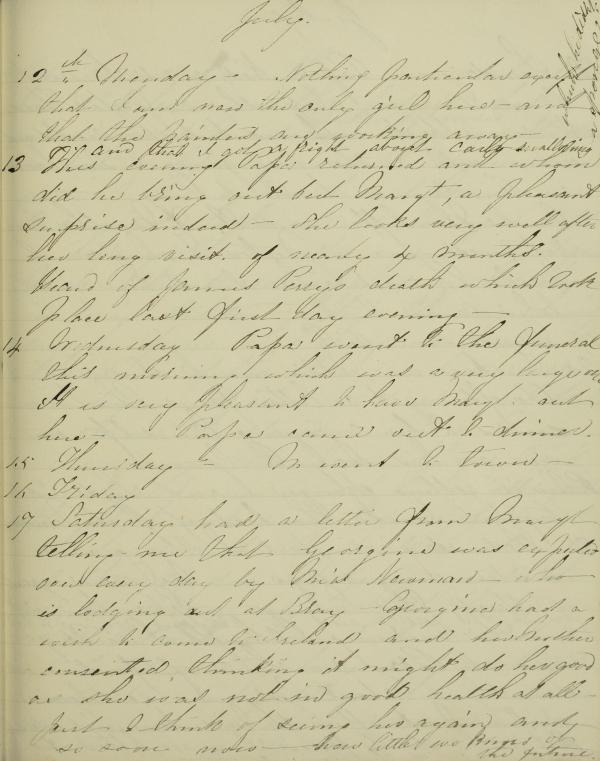 July.
12th Monday - Nothing particular except
that I am now the only girl here - and
that the painters are working away -
and that I got a fright about
13 This evening Papa returned and whom
did he bring out but Margt, a pleasant
surprise indeed - she looks very well after
her long visit. of nearly 4 months.
Heard of James Perry's death which took
place last first day evening -
14 Wednesday Papa went to the funeral
this morning which was a very large one
It is very pleasant to have Margt. out
here - Papa came out to dinner.
15 Thursday - M went to town -
16 Friday
17 Saturday had a letter from Margt
telling me that Georgina was expected
over every day by Miss Newman - who
is lodging out at Bray - Georgina had a
wish to come to Ireland and her Mother
consented, thinking it might do her good
as she was not in good health at all -
just I think of seeing her again and
so soon now - how little we know of
the future.